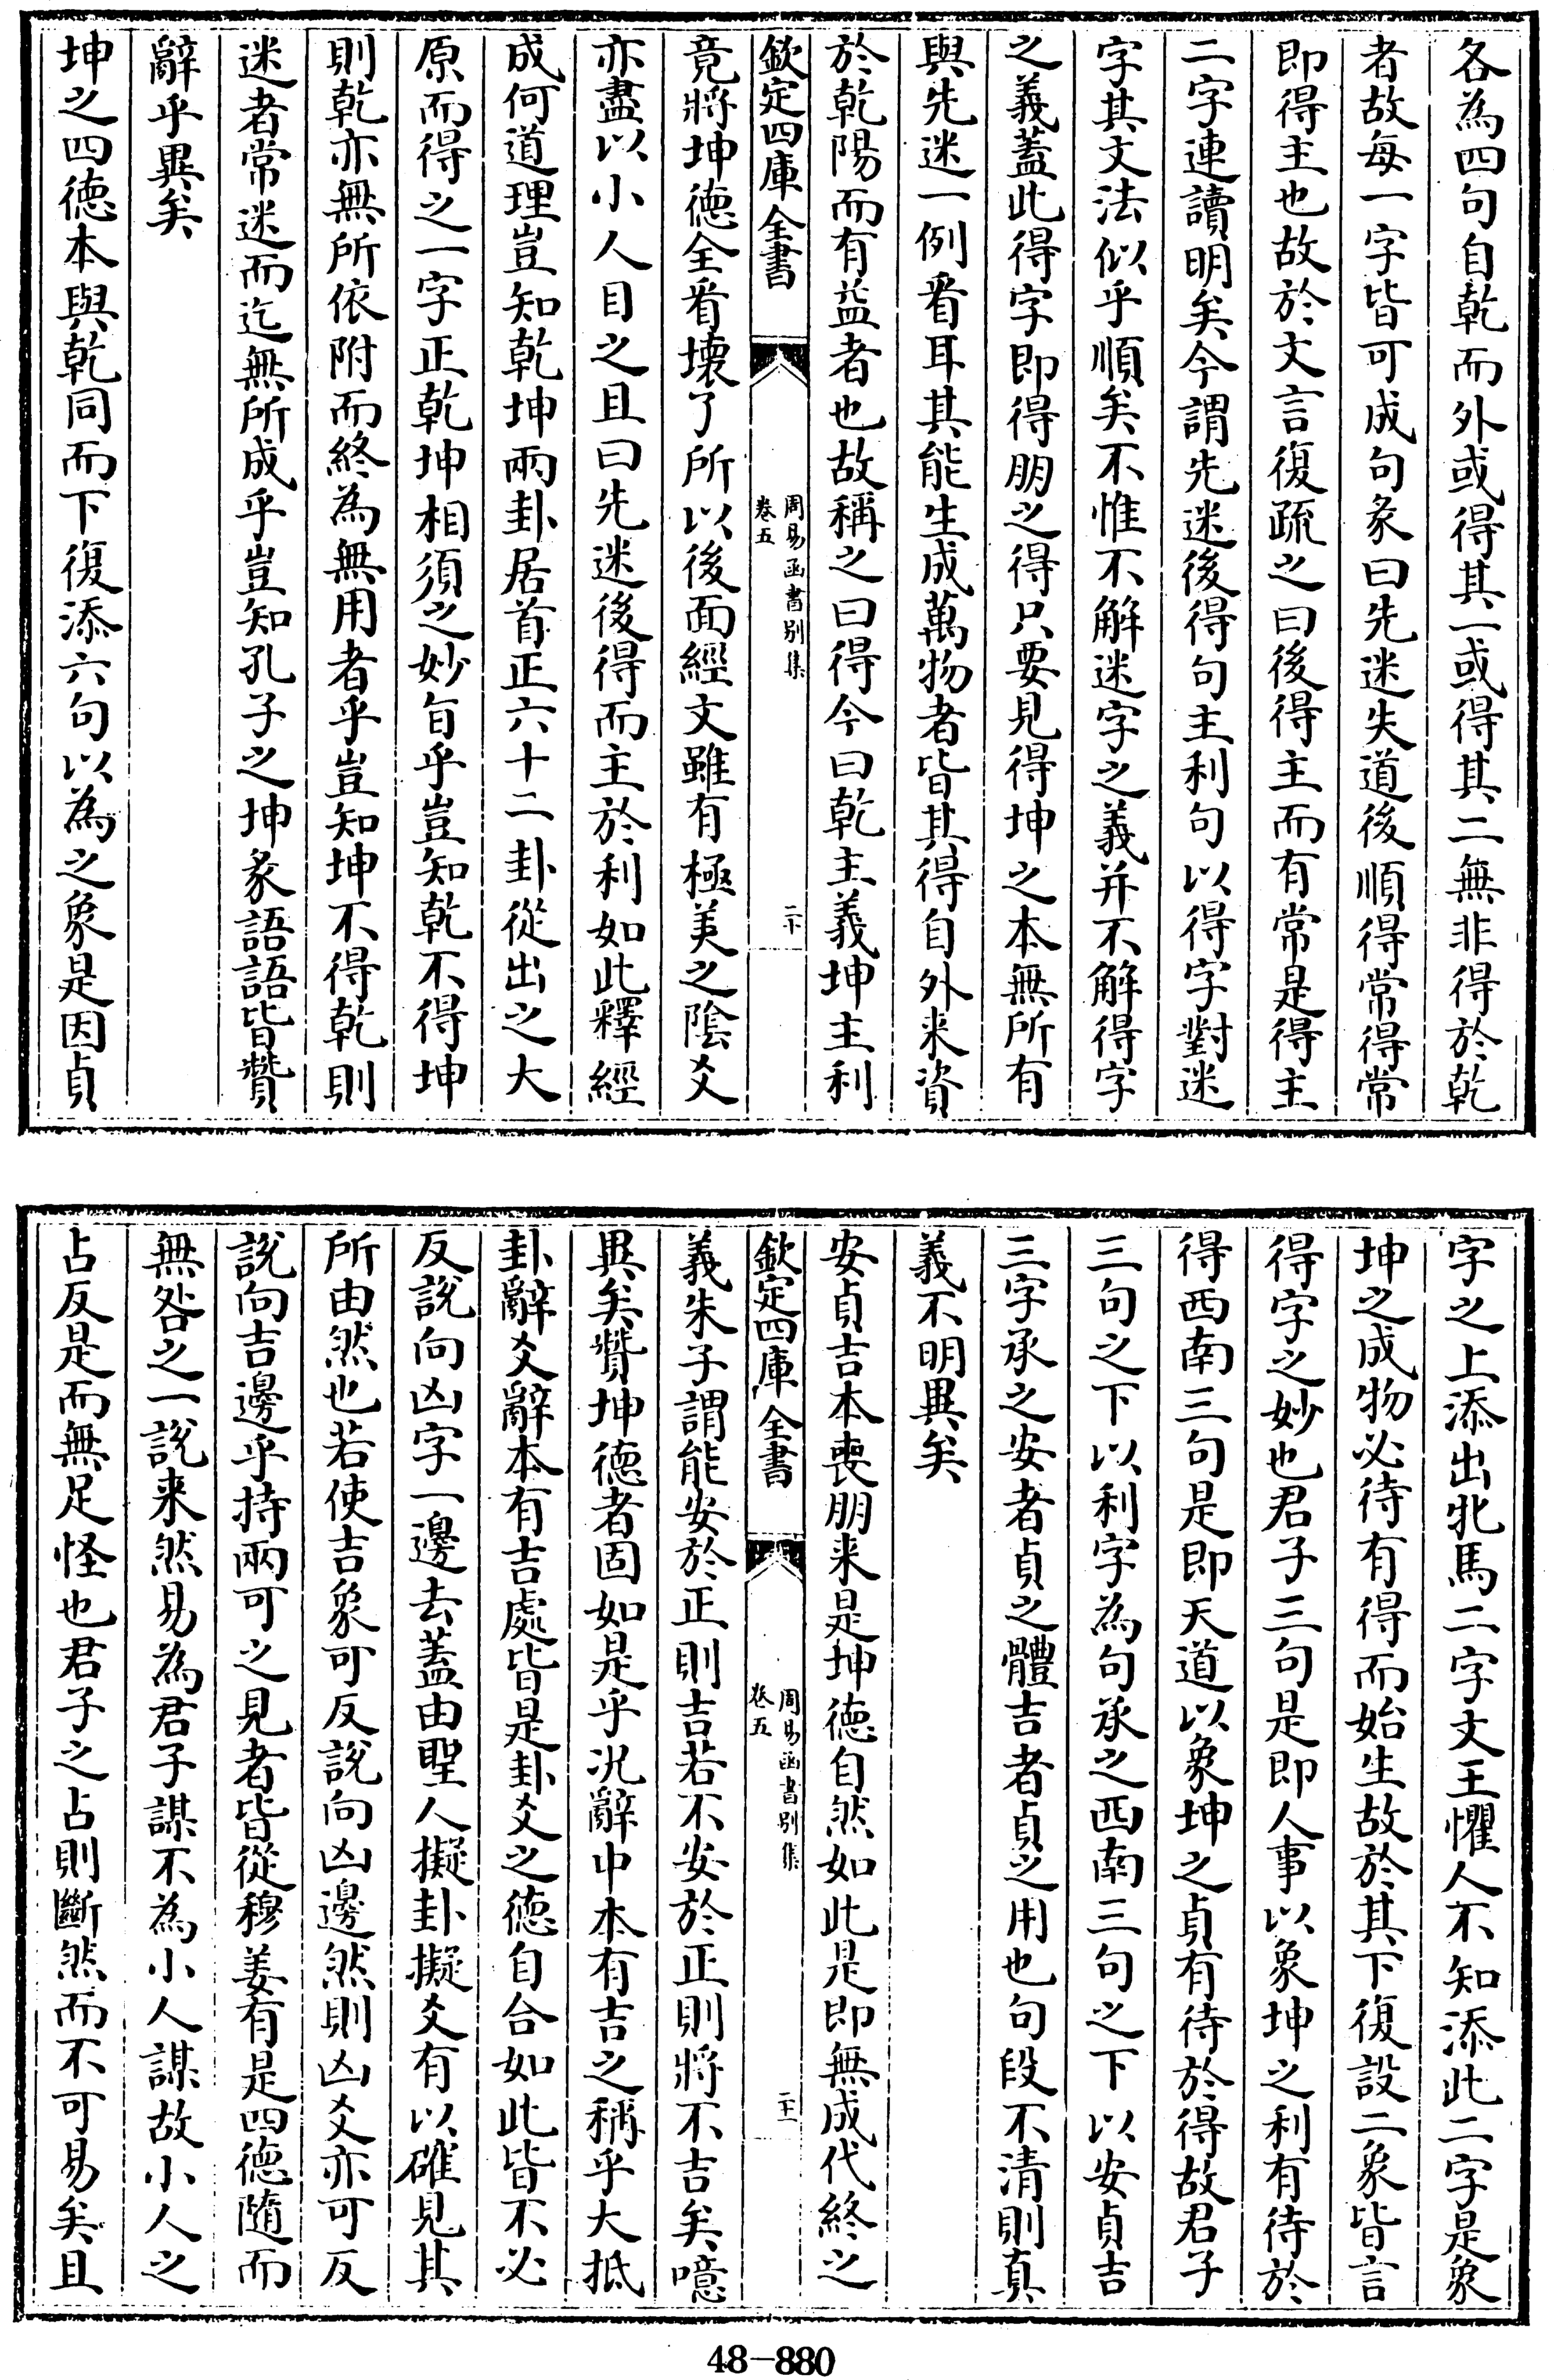 各為四句自乾而外或得其一或得其二無非得於乾
者故每一字皆可成句彖曰先迷失道後順得常得常
即得主也故於文言復疏之曰後得主而有常是得主
二字連讀明矣今謂先迷後得句主利句以得字對迷
字其文法似乎順矣不惟不解迷字之義并不解得字
之義蓋此得字即得朋之得只要見得坤之本無所有
與先迷一例看耳其能生成萬物者皆其得自外来資
於乾陽而有益者也故稱之曰得今曰乾主義坤主利
欽定四庫全書
周易函書別集
卷五
二十
竟將坤德全看壞了所以後面經文雖有極美之陰爻
亦盡以小人目之且曰先迷後得而主於利如此釋經
成何道理豈知乾坤兩卦居首正六十二卦從出之大
原而得之一字正乾坤相須之妙旨乎豈知乾不得坤
則乾亦無所依附而終為無用者乎豈知坤不得乾則
迷者常迷而迄無所成乎豈知孔子之坤彖語語皆贊
辭乎異矣
坤之四德本與乾同而下復添六句以為之象是因貞
字之上添出牝馬二字文王懼人不知添此二字是象
坤之成物必待有得而始生故於其下復設二象皆言
得字之妙也君子三句是即人事以象坤之利有待於
得西南三句是即天道以象坤之貞有待於得故君子
三句之下以利字為句承之西南三句之下以安貞吉
三字承之安者貞之體吉者貞之用也句段不清則真
義不明異矣
安貞吉本喪朋来是坤德自然如此是即無成代終之
欽定四庫全書
周易函書別集
卷五
二十一
義朱子謂能安於正則吉若不安於正則將不吉矣噫
異矣贊坤德者固如是乎况辭中本有吉之稱乎大抵
卦辭爻辭本有吉處皆是卦爻之德自合如此皆不必
反說向凶字一邊去蓋由聖人擬卦擬爻有以確見其
所由然也若使吉象可反說向凶邊然則凶爻亦可反
說向吉邊乎持兩可之見者皆從穆姜有是四德隨而
無咎之一說来然易為君子謀不為小人謀故小人之
占反是而無足怪也君子之占則斷然而不可易矣且
48-880